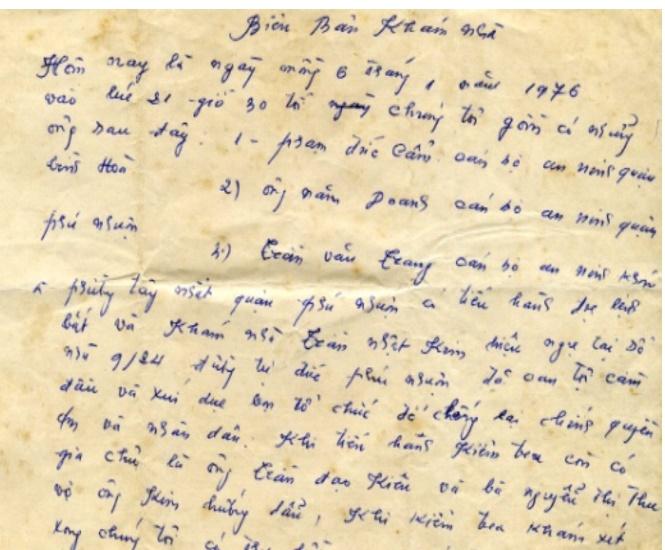 Biên Bản Khám nhà
Hôm nay là ngày mồng 6 tháng 1 năm 1976
vào lúc 21 giờ 30 tối ngày chúng tôi gồm có những
ông sau đây. 1- phạm đức Cầm cán bộ an ninh quận
bình Hoà
2) ông năm Doanh cán bộ an ninh quận
phú nhuận
3) Trần văn Trang cán bộ an ninh
tây nhất quận phú nhuận có tiến hành đọc lệnh
bắt và Khám nhà Trần nhật Kim hiện ngụ tại số
nhà 9/24 phú nhuận đã can tội cầm
đầu và xúi dục tổ chức để chống lại chính quyền
và nhân dân. Khi tiến hành Kiểm tra còn có
gia chủ là ông Trần đạo Kiên và bà nguyễn thị Thu
vợ ông Kim hướng dẫn, Khi Kiểm tra khám xét
xong chúng tôi có